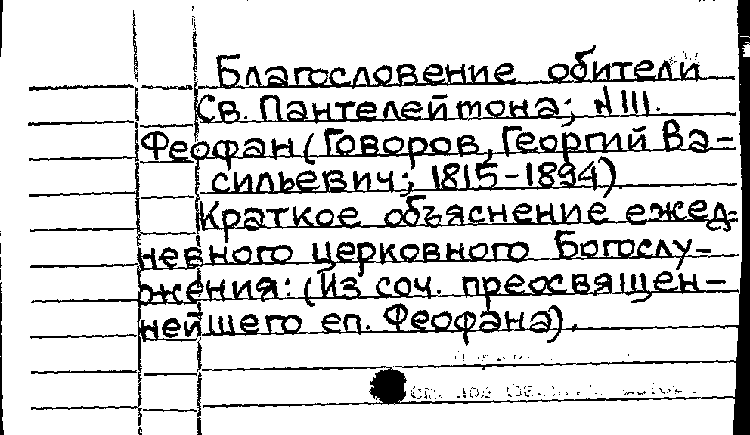 Благословение обители
Св. Пантелеймона; N 111.
Феофан (Говоров, Георгий Ва-
сильевич; 1815-1894)
Краткое объяснение ежед-
невного церковного Богослу-
жения: (Из соч. преосвящен-
нейшего еп. Феофана).